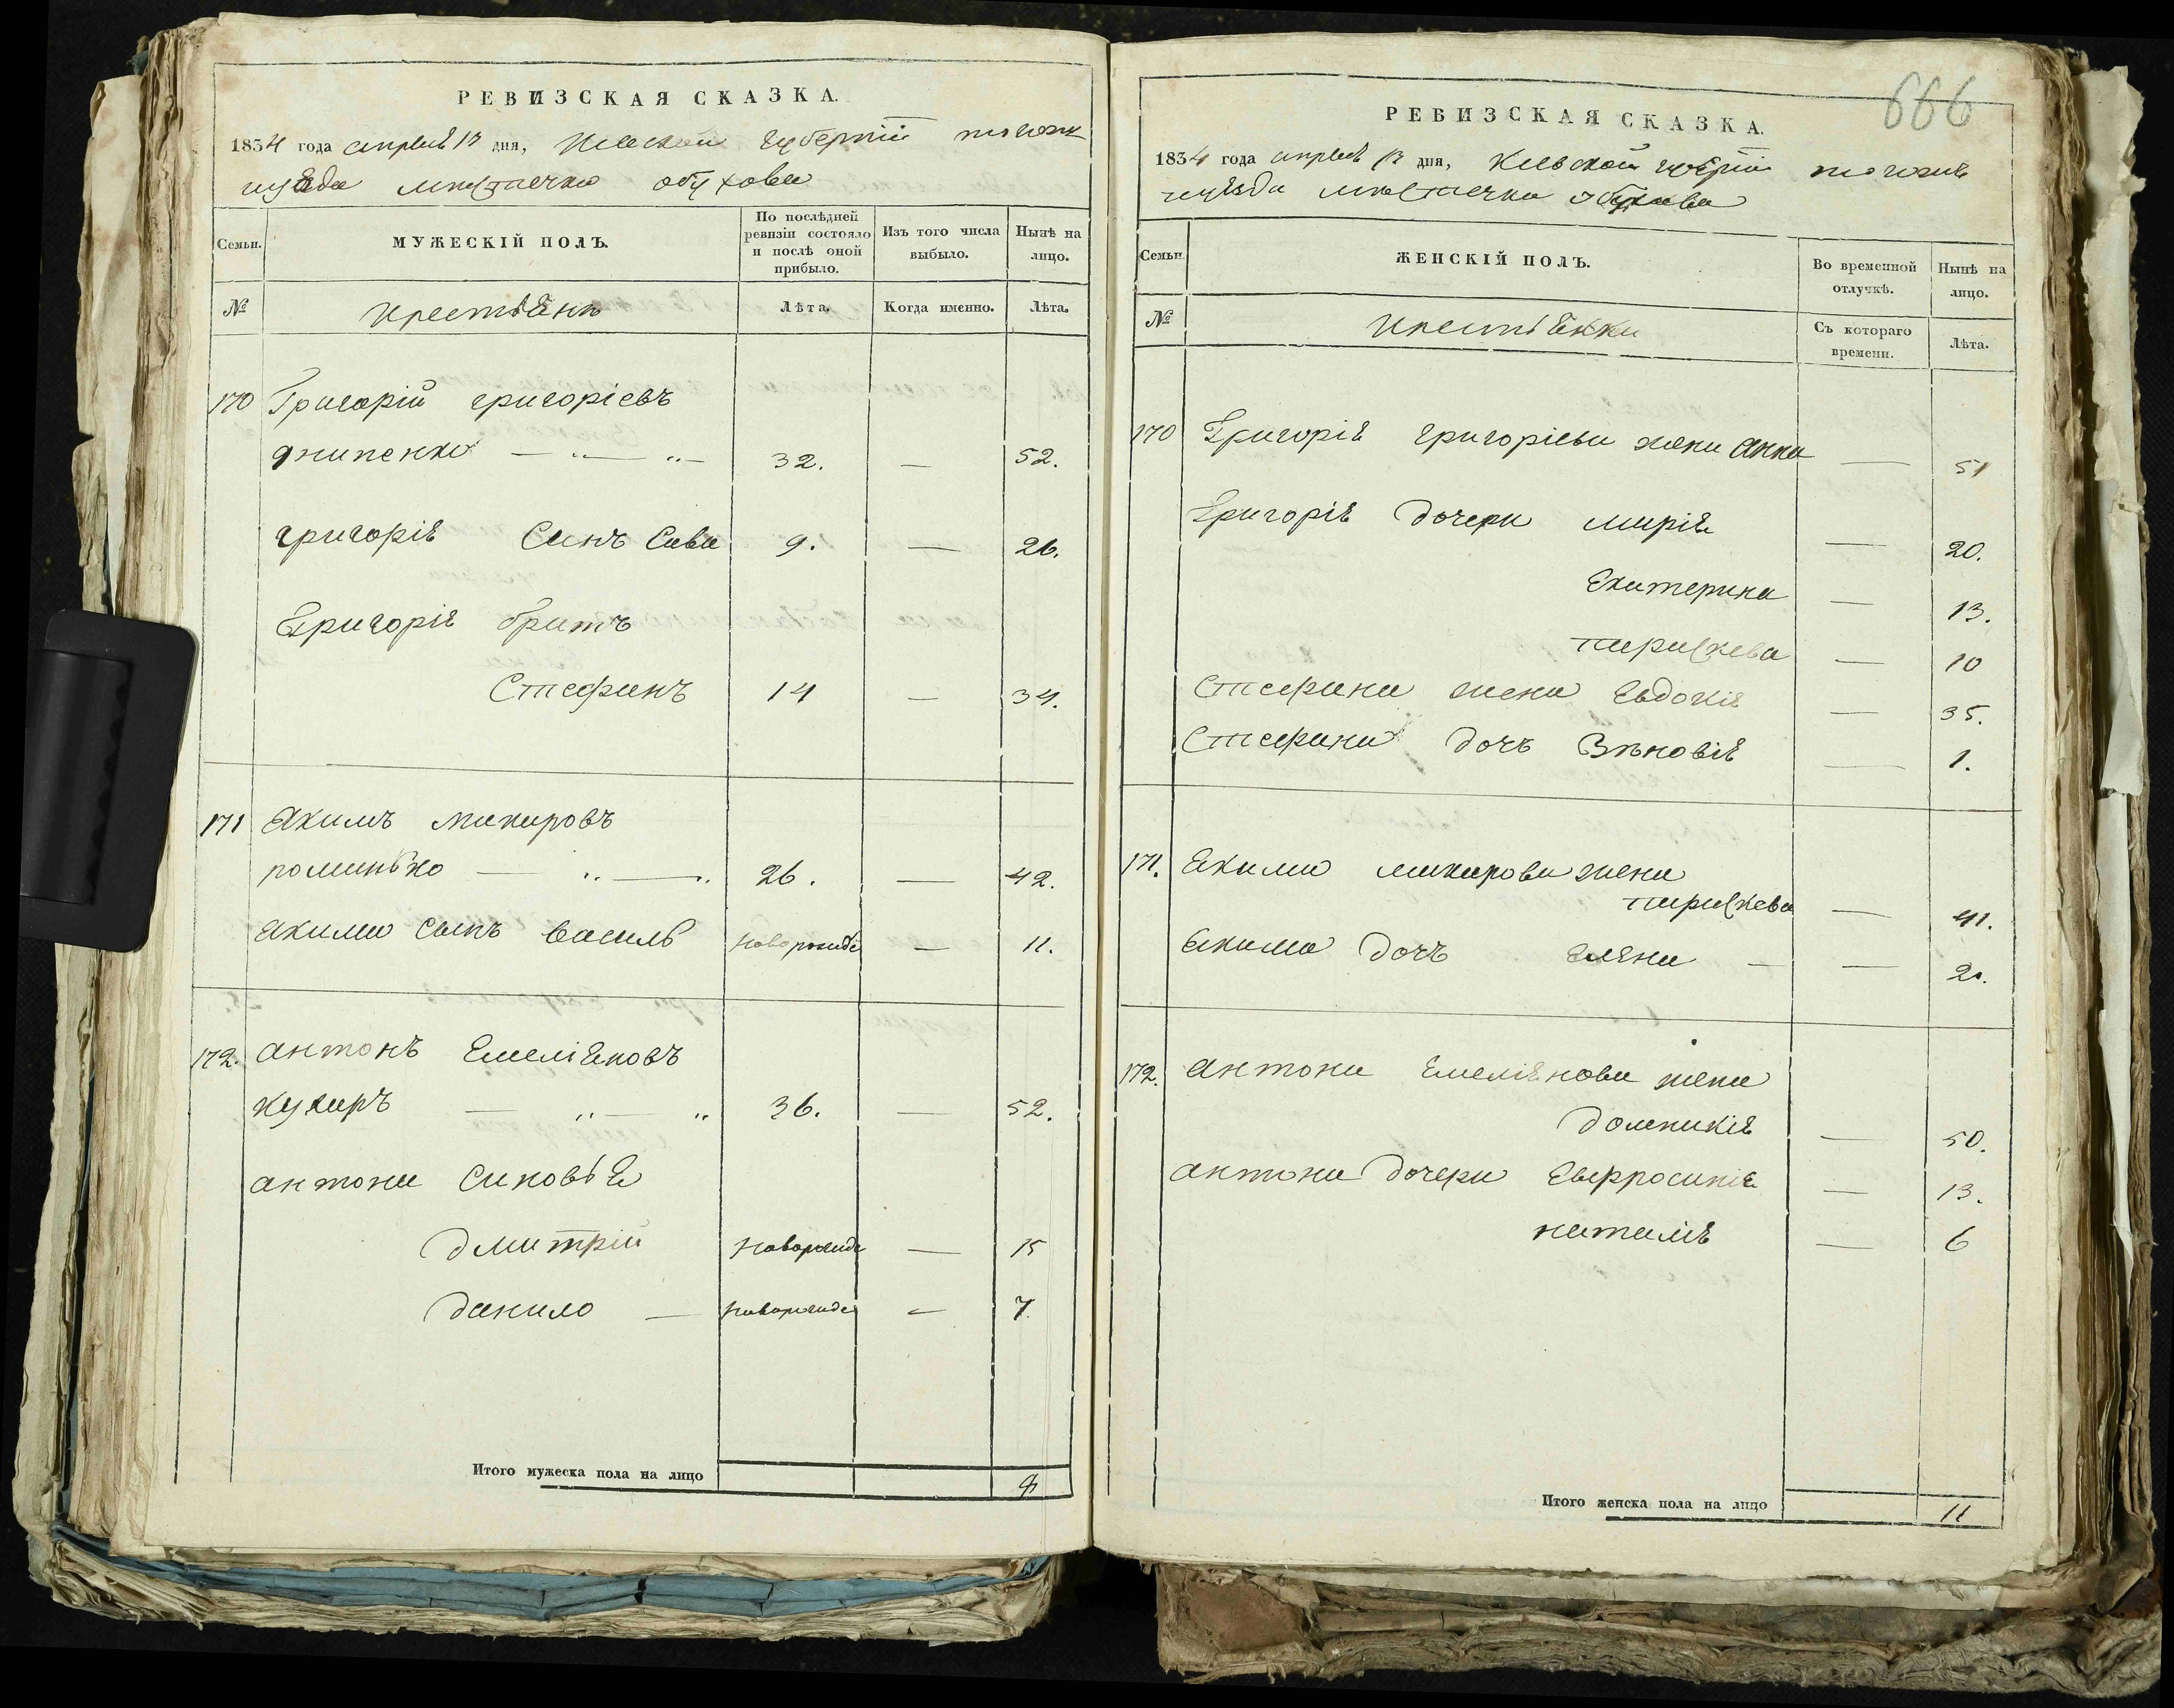 РЕВИЗСКАЯ СКАЗКА.
1834 года апреля 13 дня, Киевской губернии
уезда местечка обухова
Семьи.
МУЖЕСКІЙ ПОЛЪ.
По послѣдней ревизіи состояло и послѣ оной прибыло.
Изъ того числа выбыло.
Нынѣ на лицо.
№
крестьяне
Лѣта.
Когда именно.
Лѣта.
170 Григорій григоріевъ
32. — 52.
григорія Синъ Сава 9. — 26.
Григорія братъ
Стефанъ 14 — 34.
171 Якимъ макаровъ
26. — 42.
Якима сынъ василь новорожде — 11.
172. антонъ Емеліяновъ
кухаръ — „ — „ 36. — 52.
антона Синовья
дмитрій новорожде — 15
данило — новорожде — 7.
Итого мужеска пола на лицо 9
666
РЕВИЗСКАЯ СКАЗКА.
1834 года апреля 13 дня, Киевской губерніи
уезда местечка обухова
Семьи.
ЖЕНСКІЙ ПОЛЪ.
Во временной отлучкѣ.
Нынѣ на лицо.
№
крестьянки
Съ котораго времени.
Лѣта.
170 Григорія григоріева жена анна — 51
Григорія дочери марія — 20.
Екатерина — 13.
параскева — 10
Стефана жена Евдокія — 35.
Стефана дочъ Зѣновія — 1.
171. Якима макарова жена
параскева — 41.
Якима дочъ елена — — 20.
172. антона Емеліянова жена
домникія — 50.
антона дочери Евфросинія — 13.
наталія — 6
Итого женска пола на лицо 11